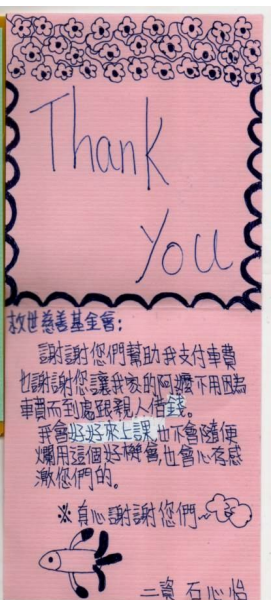 Thank
You
救世慈善基金會:
謝謝您們幫助我支付車費
也謝謝您讓我家的阿嬤不用因為
車費而到處跟親人借錢。
我會好好來上課,也不會隨便
爛用這個好機會,也會心存感
激您們的。
※真心謝謝您們
二資 石心怡